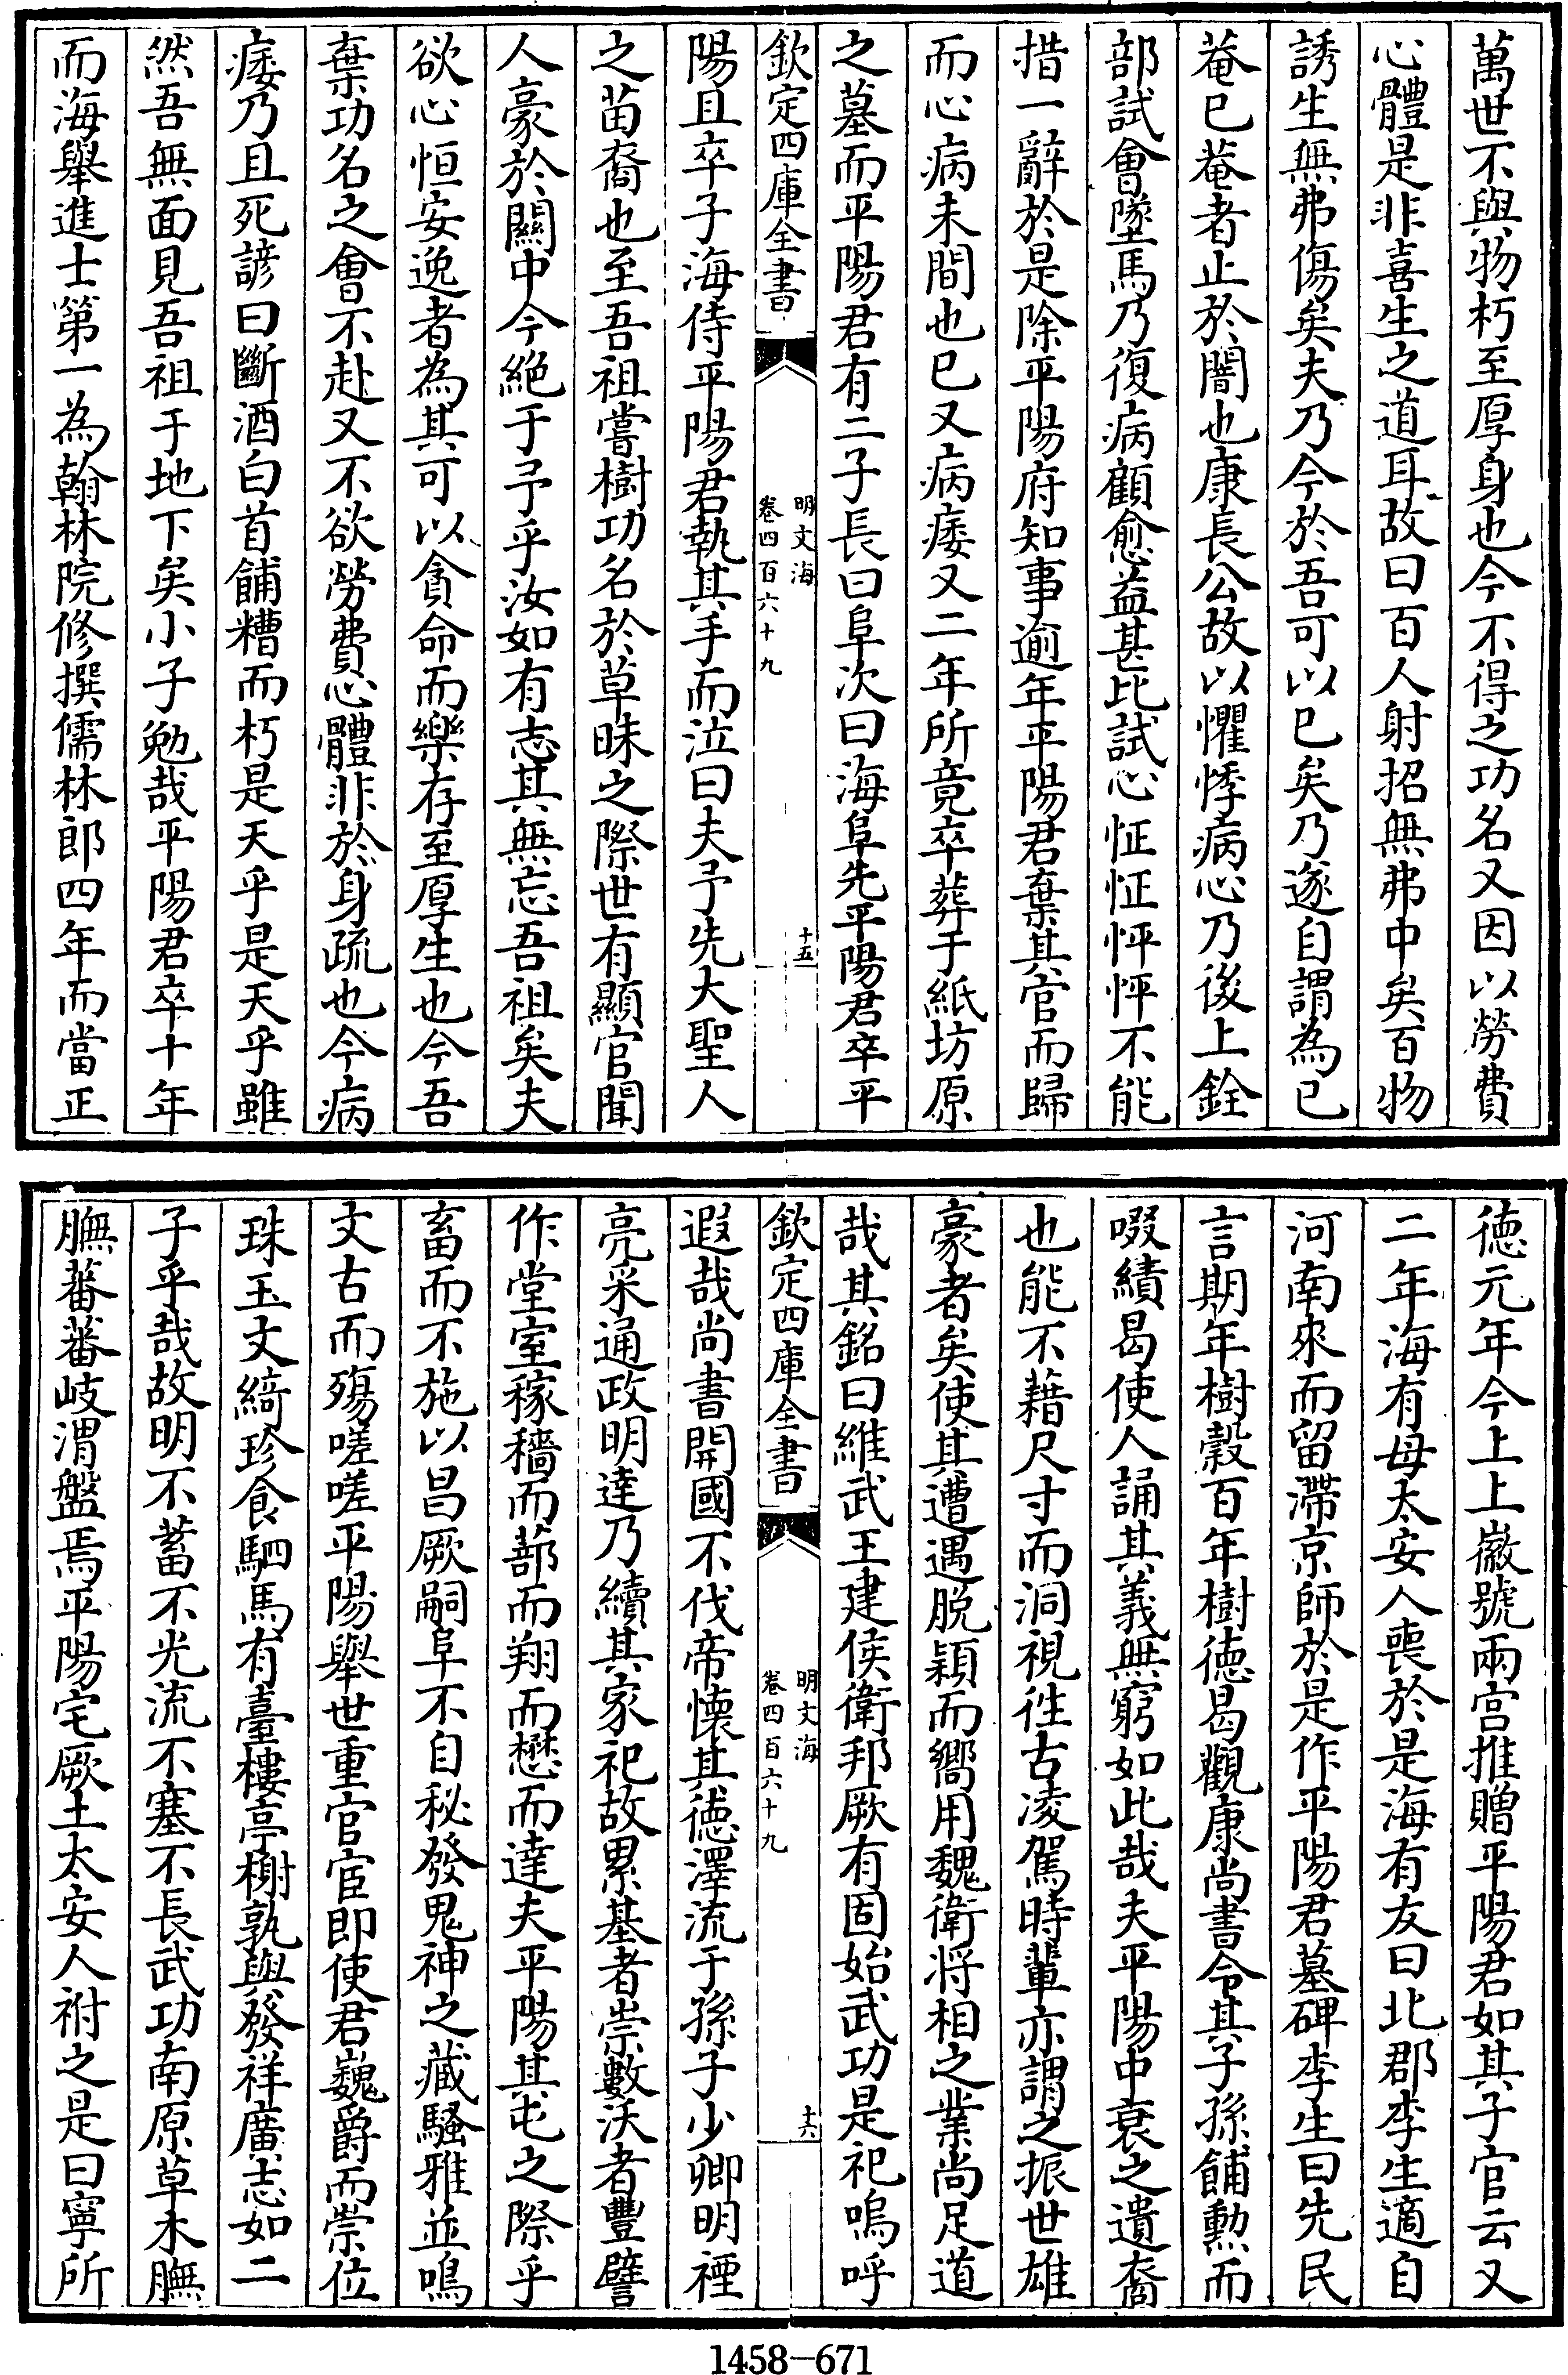 萬世不與物朽至厚身也今不得之功名又因以勞費
心體是非喜生之道耳故曰百人射招無弗中矣百物
誘生無弗傷矣夫乃今於吾可以已矣乃遂自謂為已
菴已菴者止於闇也康長公故以懼悸病心乃後上銓
部試會墜馬乃復病顧愈益甚比試心怔怔怦怦不能
措一辭於是除平陽府知事逾年平陽君棄其官而歸
而心病未間也已又病痿又二年所竟卒葬于紙坊原
之墓而平陽君有二子長曰阜次曰海阜先平陽君卒平
欽定四庫全書
明文海
卷四百六十九
十五
陽且卒子海侍平陽君執其手而泣曰夫予先大聖人
之苗裔也至吾祖嘗樹功名於草昧之際世有顯官聞
人豪於關中今絕于予乎汝如有志其無忘吾祖矣夫
欲心恒安逸者為其可以貪命而樂存至厚生也今吾
棄功名之會不赴又不欲勞費心體非於身疏也今病
痿乃且死諺曰斷酒白首餔糟而朽是天乎是天乎雖
然吾無面見吾祖于地下矣小子勉哉平陽君卒十年
而海舉進士第一為翰林院修撰儒林郎四年而當正
德元年今上上徽號兩宫推贈平陽君如其子官云又
二年海有母太安人喪於是海有友曰北郡李生適自
河南來而留滯京師於是作平陽君墓碑李生曰先民
言期年樹穀百年樹德曷觀康尚書令其子孫餔勲而
啜績曷使人誦其義無窮如此哉夫平陽中衰之遺裔
也能不藉尺寸而洞視徃古凌駕時輩亦謂之振世雄
豪者矣使其遭遇脫穎而嚮用魏衛將相之業尚足道
哉其銘曰維武王建侯衛邦厥有固始武功是祀嗚呼
欽定四庫全書
明文海
卷四百六十九
十六
遐哉尚書開國不伐帝懷其德澤流于孫子少卿明禋
亮采通政明達乃續其家祀故累基者崇數沃者豐譬
作堂室稼穡而蔀而翔而懋而達夫平陽其屯之際乎
畜而不施以昌厥嗣阜不自秘發鬼神之藏騷雅並鳴
文古而殤嗟嗟平陽舉世重官宦即使君巍爵而崇位
珠玉文綺珍食駟馬有臺樓亭榭孰與發祥廣志如二
子乎哉故明不蓄不光流不塞不長武功南原草木膴
膴蕃蕃岐渭盤焉平陽宅厥土太安人祔之是曰寧所
1458—671